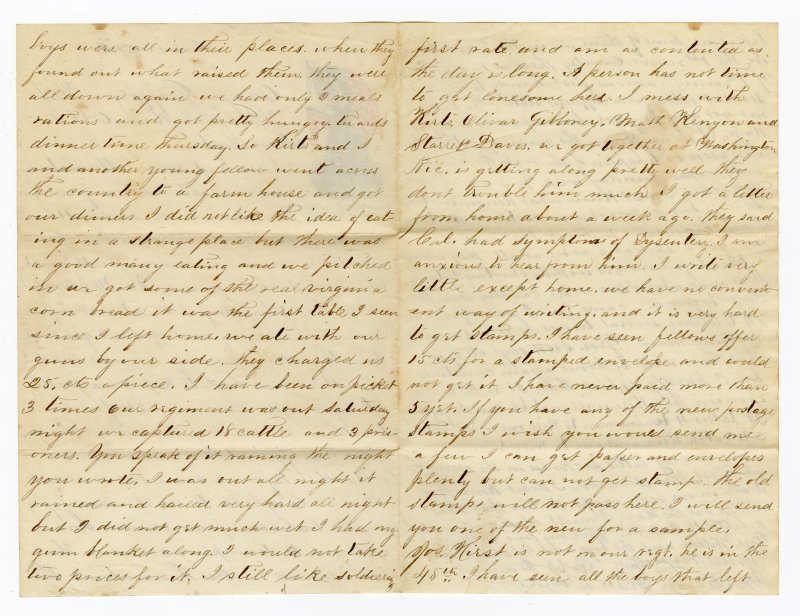 boys were all in their places. when they
found out what raised them they were
all down again we had only 2 meals
rations and got pretty hungry towards
dinner time Thursday. So Kirts and I
and another young fellow went across
the country to a farm house and got
our dinners I did not like the idea of eat
ing in a strange place but there was
a good many eating and we pitched
in we got some of the real virginia
corn bread it was the first table I seen
since I left home, we ate with our
guns by our side. they charged us
25, cts apiece. I have been on picket
3 times our regiment was out Saturday
night we captured 18 cattle and 3 pris-
oners. You speak of it raining the night
you wrote. I was out all night it
rained and hailed very hard all night
but I did not get much wet I had my
gum blanket along I would not take
two prices for it. I still like soldiering
first rate and am as contented as
the day is long. A person has not time
to get lonesome here. I mess with
Kirts, Olivar Gibboney. Math Kenyon and
Starr H Davis. we got together at Washington
Nic. is getting along pretty well they
dont trouble him much I got a letter
from home about a week ago. they said
Cal. had symptoms of Dysentery. I am
anxious to hear from him. I write very
little except home. we have no conveni-
ent way of writing. and it is very hard
to get stamps. I have seen fellows offer
15 cts for a stamped envelope and could
not get it I have never paid more than
5 yet. If you have any of the new postage
stamps I wish you would send me
a few I can get paper and envelopes
plenty but can not get stamps. the old
stamps will not pass here. I will send
you one of the new for a sample.
Jos. Hirst is not in our regt. he is in the
48th. I have seen all the boys that left